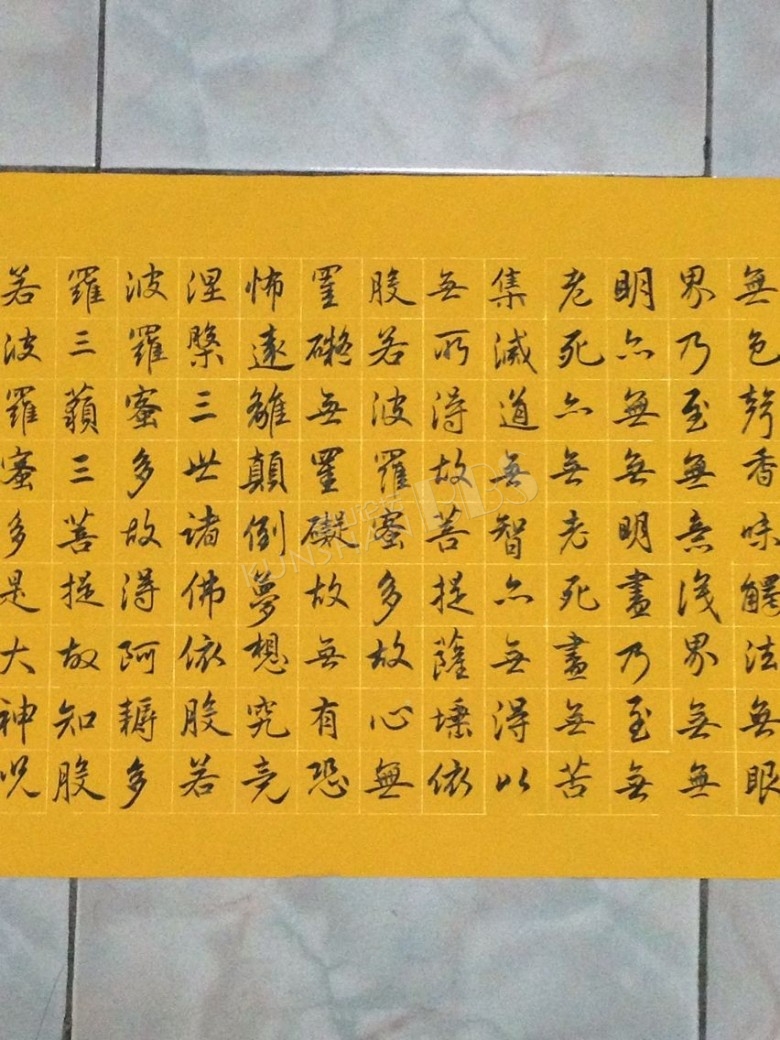 無色聲香味觸法無眼
界乃至無意識界無無
明亦無無明盡乃至無
老死亦無老死盡無苦
集滅道無智亦無得以
無所得故菩提薩埵依
般若波羅蜜多故心無
罣礙無罣礙故無有恐
怖遠離顛倒夢想究竟
涅槃三世諸佛依般若
波羅蜜多故得阿耨多
羅三藐三菩提故知般
若波羅蜜多是大神咒
KUNSHAN BBS